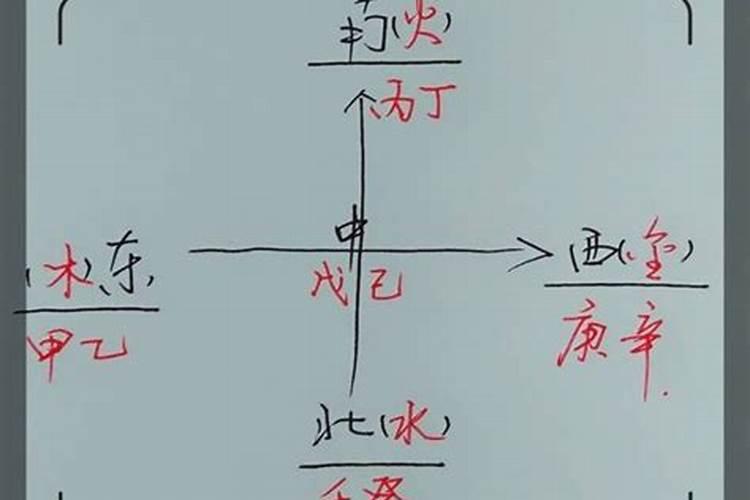 南(火)
丙丁
中
(木)东
西(金)
戊己
甲乙
庚辛
北(水)
壬癸